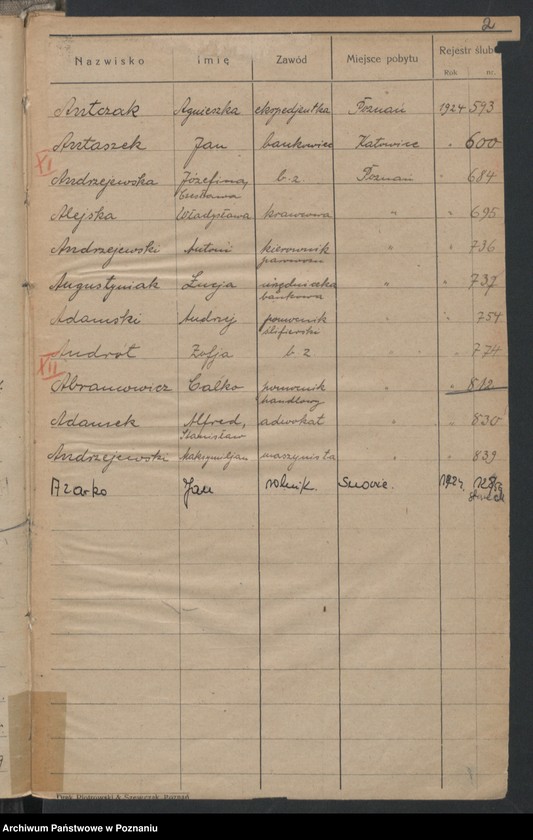 2
Nazwisko imię Zawód Miejsce pobytu Rejestr ślub
Rok nr.
Antczak Agnieszka ekspedjentka Poznań 1924 593
Antaszek Jan bankowiec Katowice " 600
XI
Andrzejewska Józefina, b. z. Poznań " 684
Czesława
Alejska Władysława krawcowa " " 695
Andrzejewski Antoni kierownik " " 736
Augustyniak Łucja urzędniczka " " 737
bankowa
Adamski Andrzej pomocnik " " 754
ślifierski
Andrót Zofja b. z " " 774
XII
Abramowicz Calko pomocnik " " 812
handlowy
Adamek Alfred, adwokat " " 830
Stanisław
Andrzejewski Maksymiljan maszynista " " 839
Azarko Jan rolnik. 1924
Druk. Piotrowski & Szewczak, Poznań
Archiwum Państwowe w Poznaniu